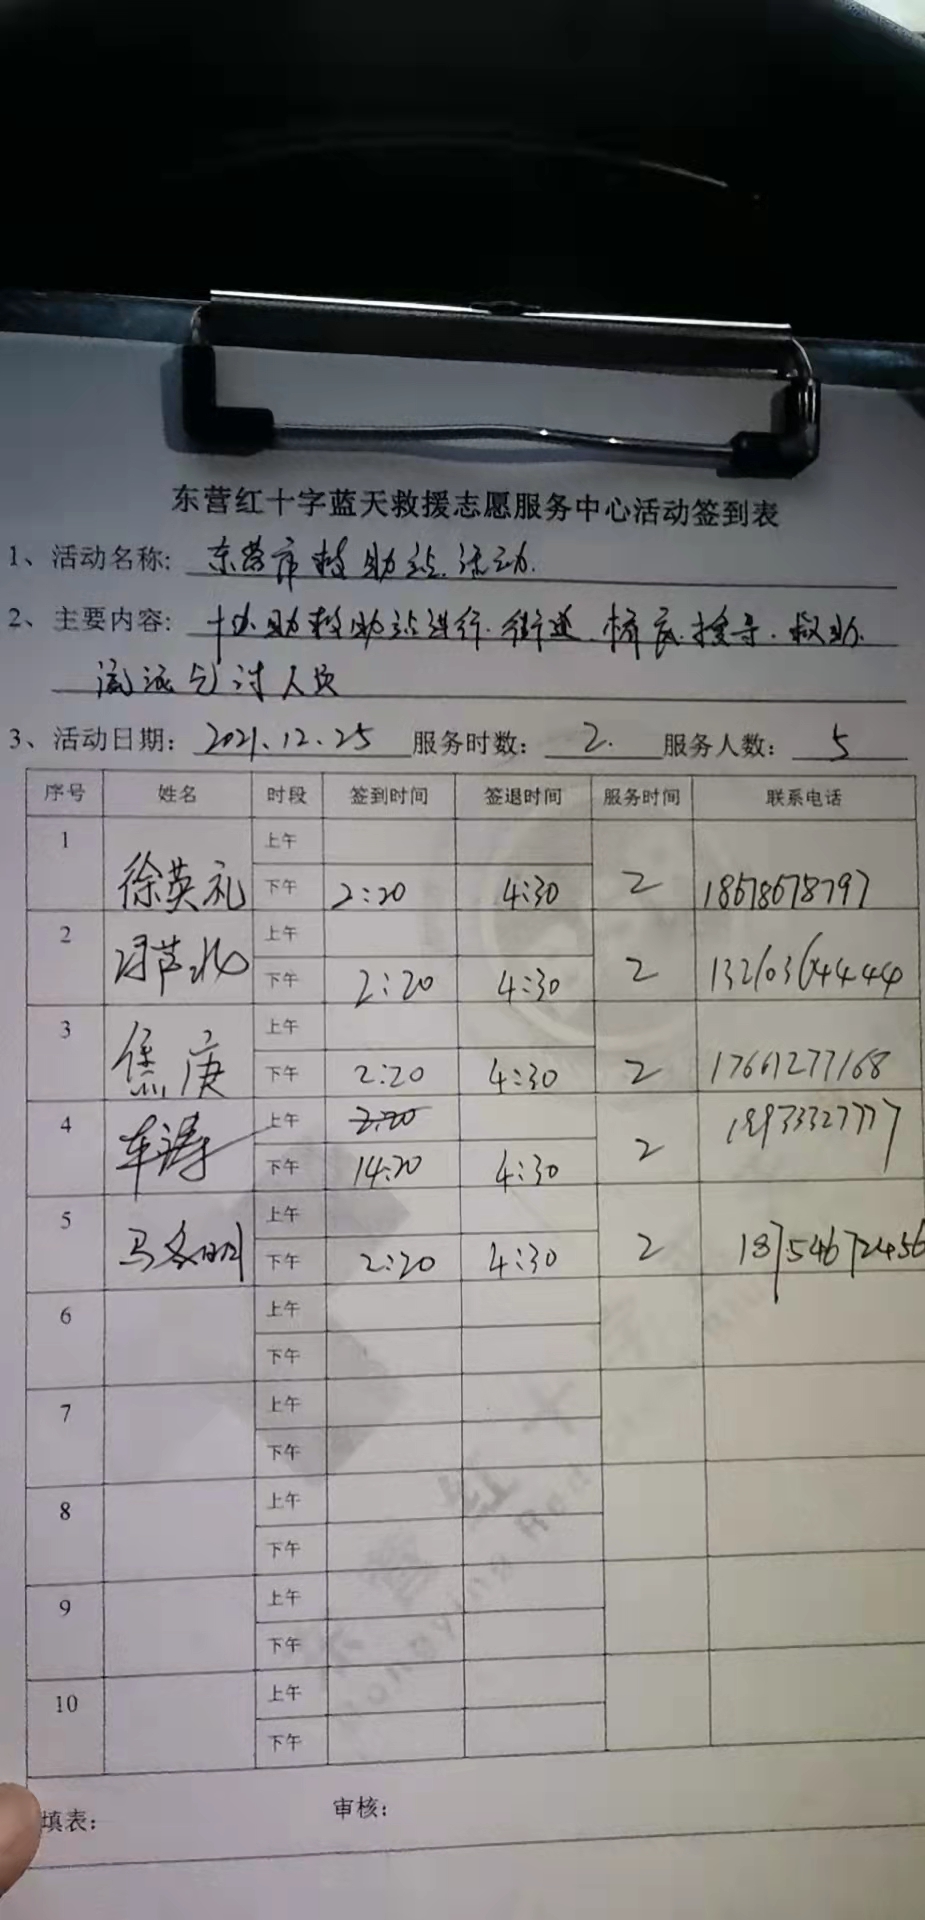 东营红十字蓝天救援志愿服务中心活动签到表
1、活动名称: 东营市救助站活动.
2、主要内容: 协助救助站进行.街道.桥底.搜寻.救助.
流浪乞讨人员
3、活动日期: 2021.12.25 服务时数: 2. 服务人数: 5
序号 姓名 时段 签到时间 签退时间 服务时间 联系电话
1 徐英礼 上午
下午 2:20 4:30 2 18678678797
2 上午
下午 2:20 4:30 2 13210364444
3 焦庚 上午
下午 2:20 4:30 2 17661277168
4 车涛 上午 2:20
下午 14:20 4:30 2
5 上午
下午 2:20 4:30 2 18754672456
6 上午
下午
7 上午
下午
8 上午
下午
9 上午
下午
10 上午
下午
填表: 审核: